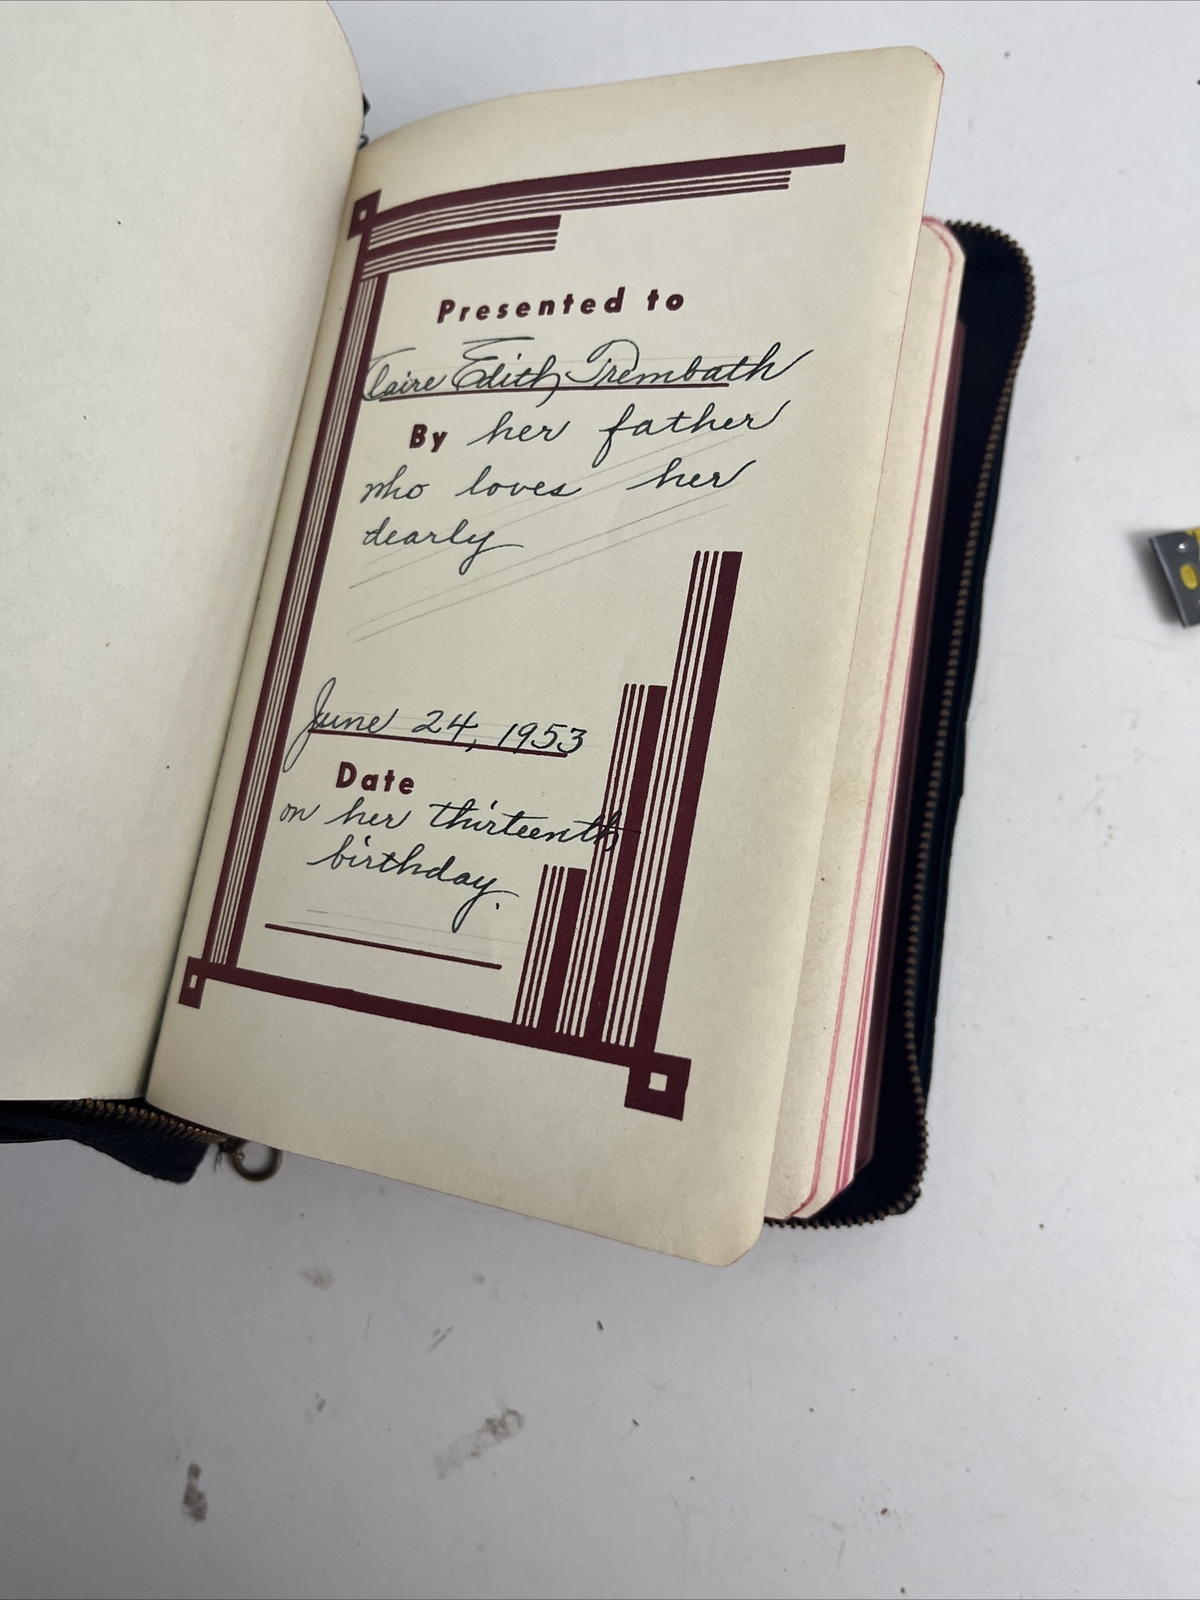 Presented to
Claire Edith Trembath
By her father
who loves her
dearly
June 24, 1953
Date
on her thirteenth
birthday.